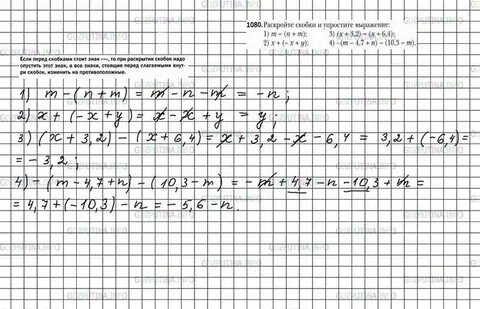 1080. Раскройте скобки и упростите выражение:
1) m − (n + m);
3) (x + 3,2) − (x + 6,4);
2) x + (− x + y);
4) −(m − 4,7 + n) − (10,3 − m).
Если перед скобками стоит знак «−», то при раскрытии скобок надо
опустить этот знак, а все знаки, стоящие перед слагаемыми внут-
ри скобок, изменить на противоположные.
1) m − (n + m) = m − n − m = − n ;
2) x + (− x + y) = x − x + y = y ;
3) (x + 3,2) − (x + 6,4) = x + 3,2 − x − 6,4 = 3,2 + (− 6,4) =
= − 3,2 ;
4) − (m − 4,7 + n) − (10,3 − m) = − m + 4,7 − n − 10,3 + m =
= 4,7 + (− 10,3) − n = − 5,6 − n.
GDZPUTINA.INFO